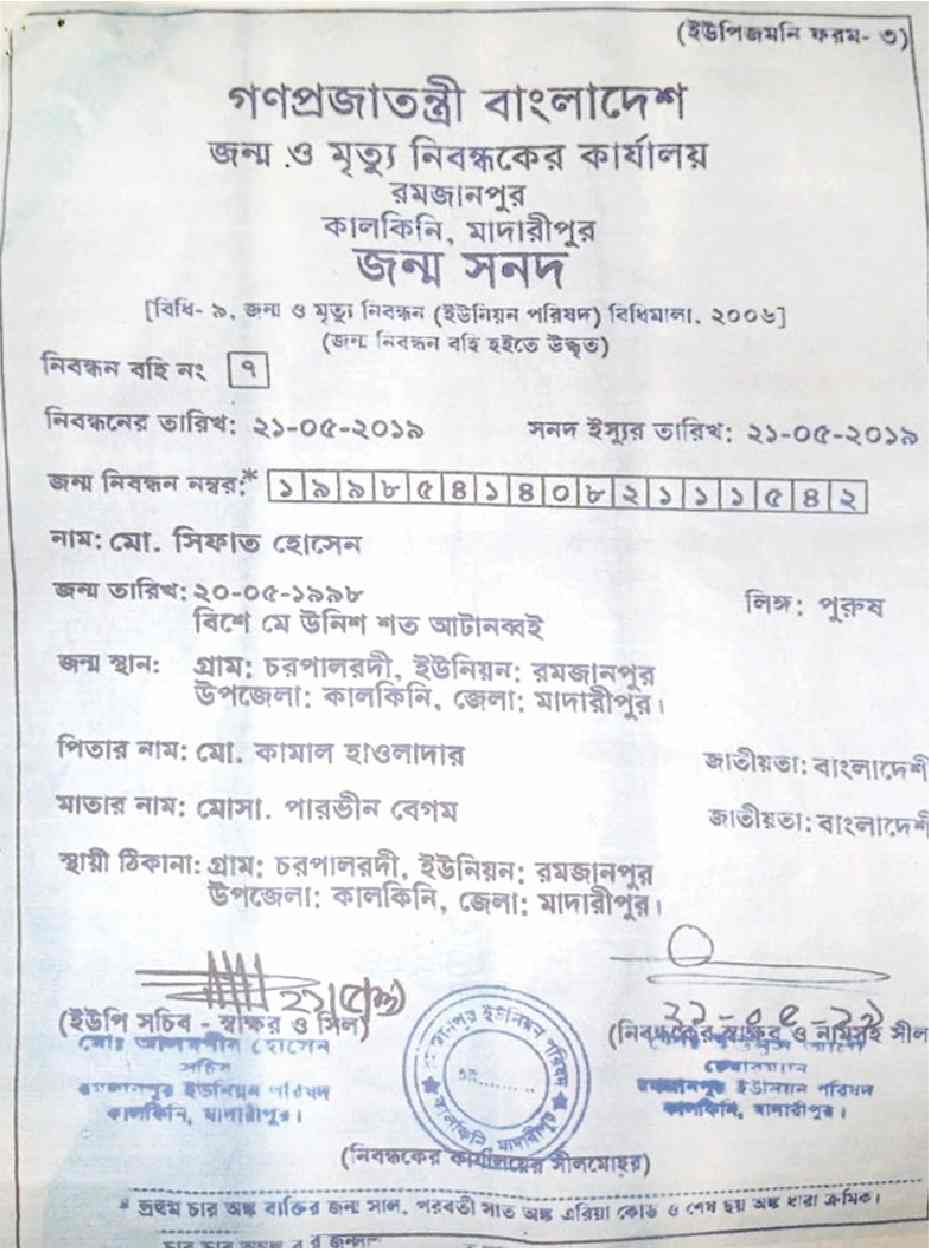 (ইউপিজমনি ফরম- ৩)
গণপ্রজাতন্ত্রী বাংলাদেশ
জন্ম ও মৃত্যু নিবন্ধকের কার্যালয়
রমজানপুর
কালকিনি, মাদারীপুর
জন্ম সনদ
[বিধি- ৯, জন্ম ও মৃত্যু নিবন্ধন (ইউনিয়ন পরিষদ) বিধিমালা, ২০০৬]
(জন্ম নিবন্ধন বহি হইতে উদ্ধৃত)
নিবন্ধন বহি নং ৭
নিবন্ধনের তারিখ: ২১-০৫-২০১৯ সনদ ইস্যুর তারিখ: ২১-০৫-২০১৯
জন্ম নিবন্ধন নম্বর:* ১৯৯৮৫৪১৪০৮২১১১৫৪২
নাম: মো. সিফাত হোসেন
জন্ম তারিখ: ২০-০৫-১৯৯৮ লিঙ্গ: পুরুষ
বিশে মে উনিশ শত আটানব্বই
জন্ম স্থান: গ্রাম: চরপালরদী, ইউনিয়ন: রমজানপুর
উপজেলা: কালকিনি, জেলা: মাদারীপুর।
পিতার নাম: মো. কামাল হাওলাদার জাতীয়তা: বাংলাদেশী
মাতার নাম: মোসা. পারভীন বেগম জাতীয়তা: বাংলাদেশী
স্থায়ী ঠিকানা: গ্রাম: চরপালরদী, ইউনিয়ন: রমজানপুর
উপজেলা: কালকিনি, জেলা: মাদারীপুর।
(ইউপি সচিব - স্বাক্ষর ও সিল) (নিবন্ধকের স্বাক্ষর ও নামসহ সীল
হোসেন
সচিব
রমজানপুর ইউনিয়ন পরিষদ
কালকিনি, মাদারীপুর।
রমজানপুর ইউনিয়ন পরিষদ
কালকিনি, মাদারীপুর
চেয়ারম্যান
রমজানপুর ইউনিয়ন পরিষদ
কালকিনি, মাদারীপুর।
(নিবন্ধকের কার্যালয়ের সীলমোহর)
* প্রথম চার অঙ্ক ব্যক্তির জন্ম সাল, পরবর্তী সাত অঙ্ক এরিয়া কোড ও শেষ ছয় অঙ্ক ধারা ক্রমিক।